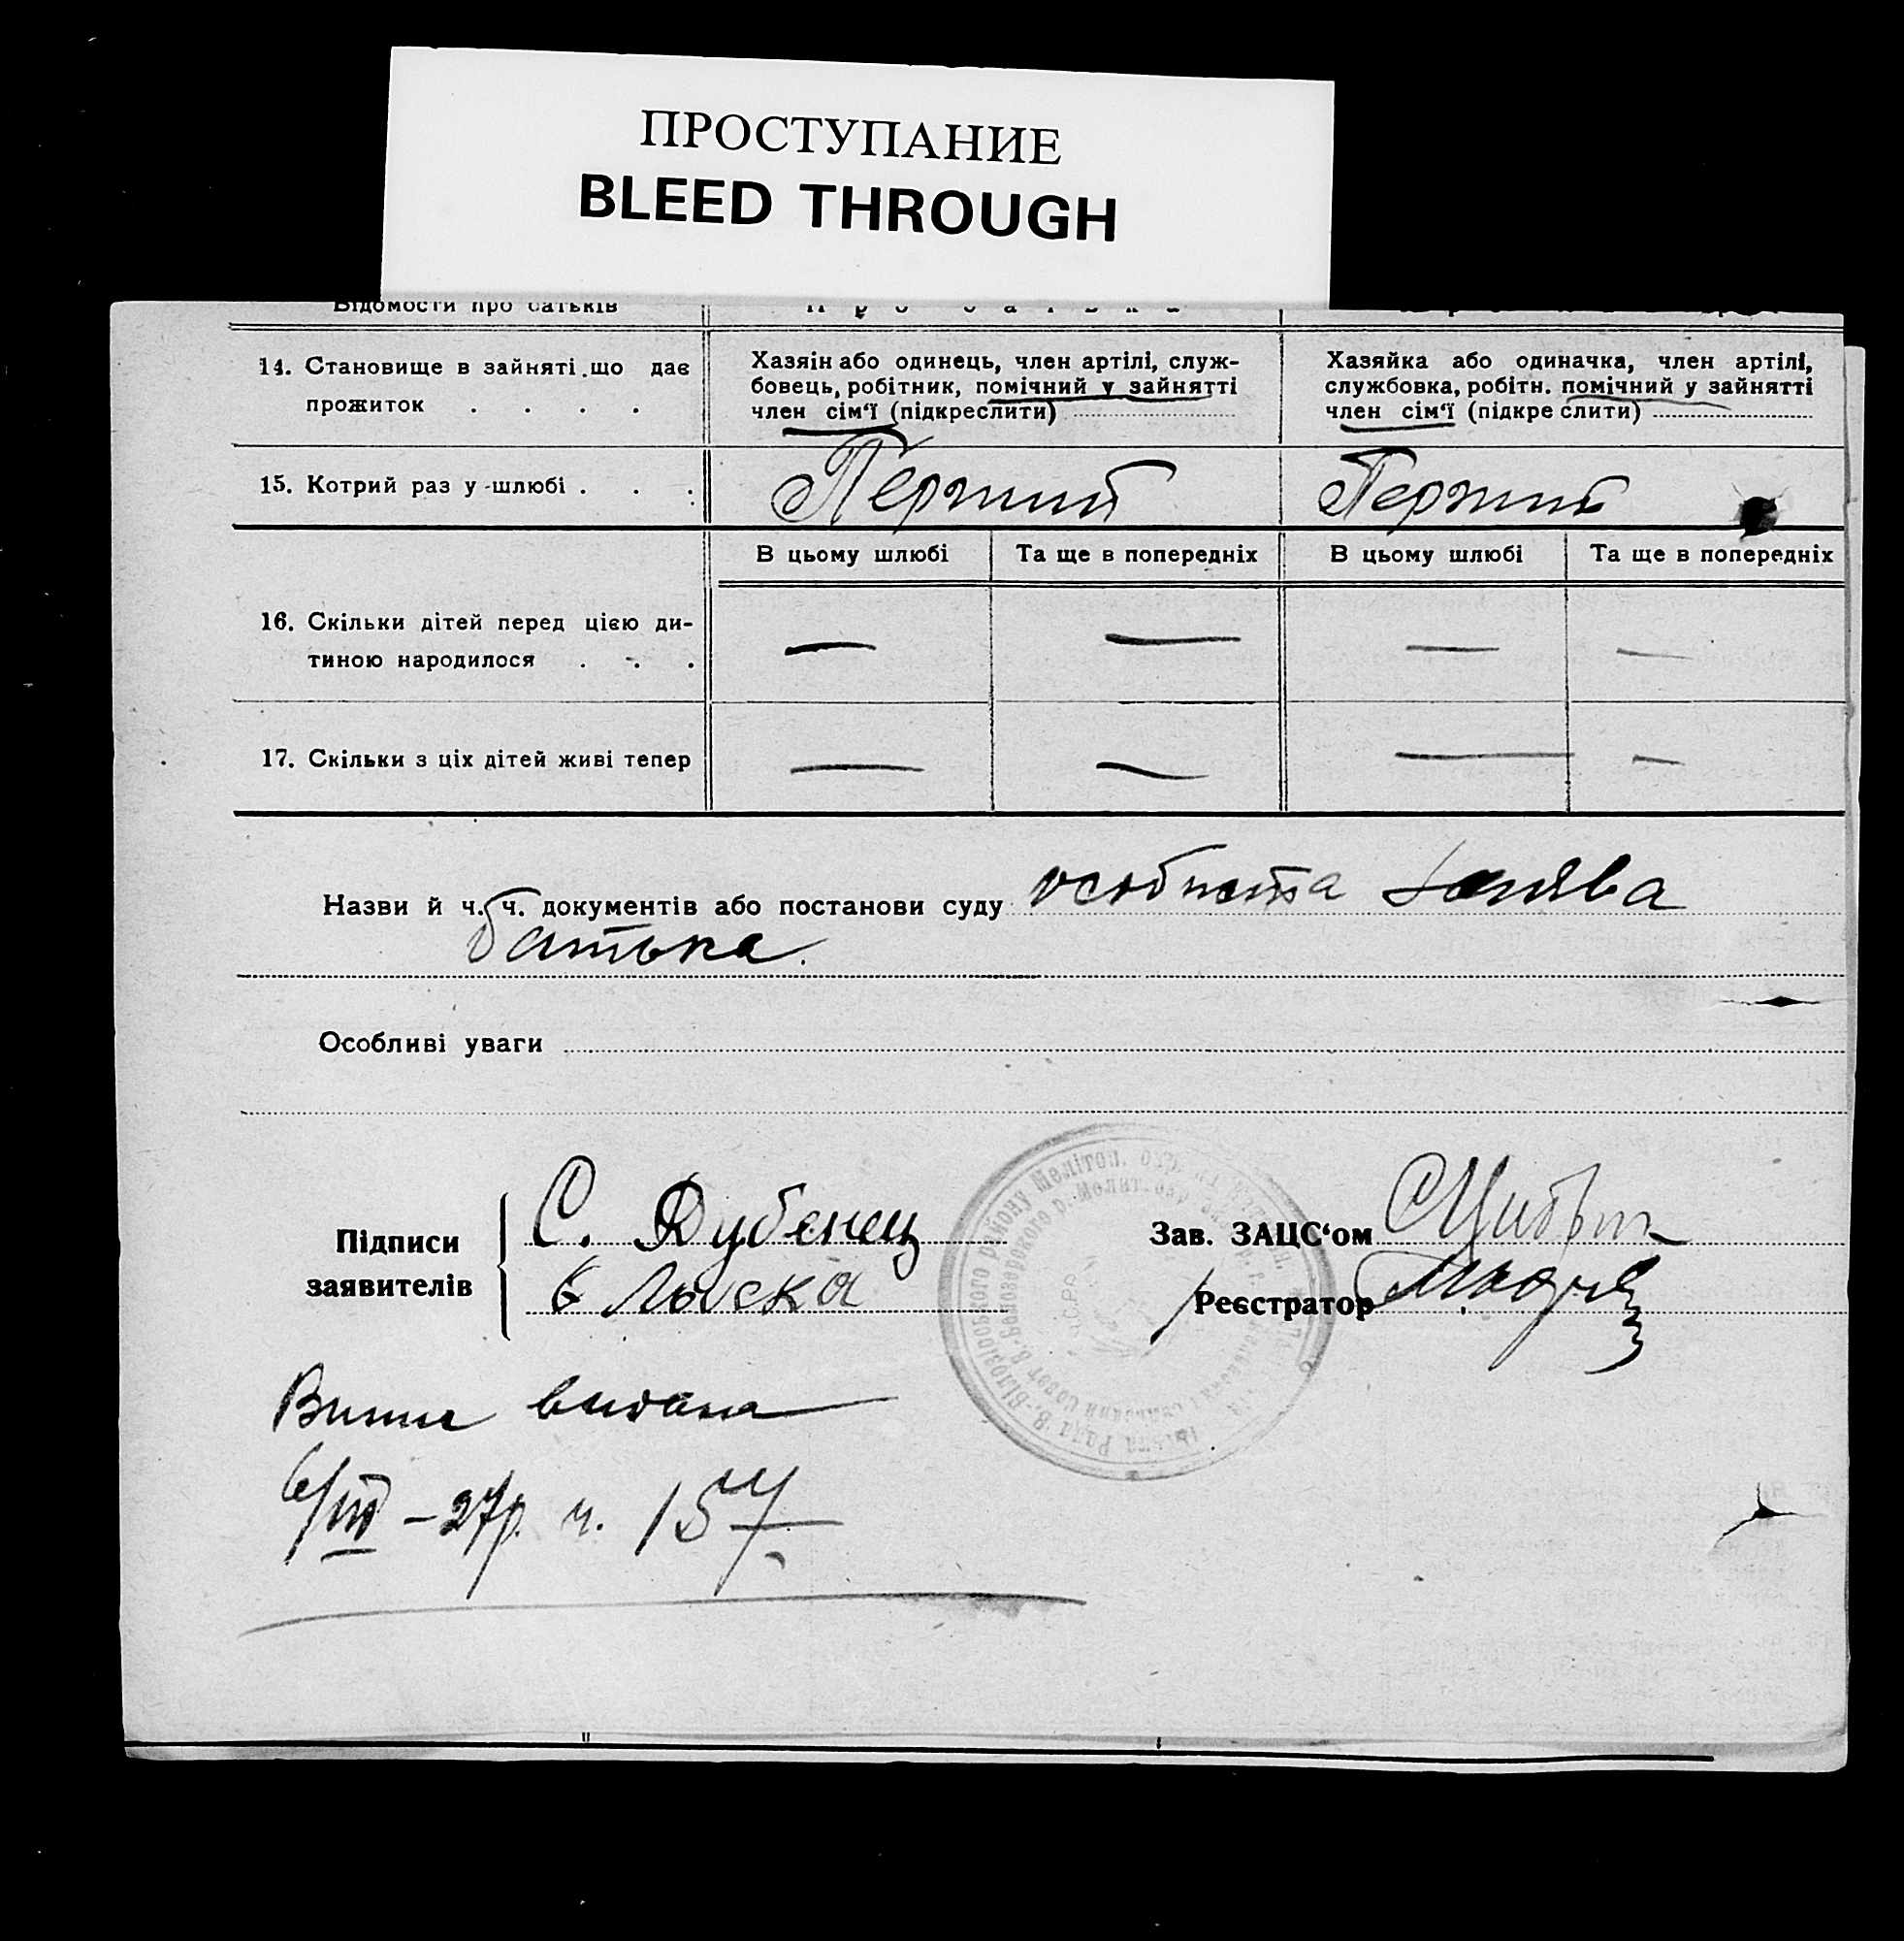 ПРОСТУПАНИЕ
BLEED THROUGH
Відомости про батьків
14. Становище в зайняті що дає
прожиток . . . .
Хазяін або одинець, член артілі, служ-
бовець, робітник, помічний у зайнятті
член сім'ї (підкреслити)
Хазяйка або одиначка, член артілі,
службовка, робітн. помічний у зайнятті
член сім'ї (підкреслити)
15. Котрий раз у шлюбі . . .
Перший
Перший
В цьому шлюбі
Та ще в попередніх
В цьому шлюбі
Та ще в попередніх
16. Скільки дітей перед цією ди-
тиною народилося . . .
— — — —
17. Скільки з ціх дітей живі тепер
— — — —
Назви й ч. ч. документів або постанови суду особиста заява
батька.
Особливі уваги
Підписи
заявителів
С. Дубенец
Зав. ЗАЦС'ом
Реєстратор
видана
6/VII – 27р. ч. 157